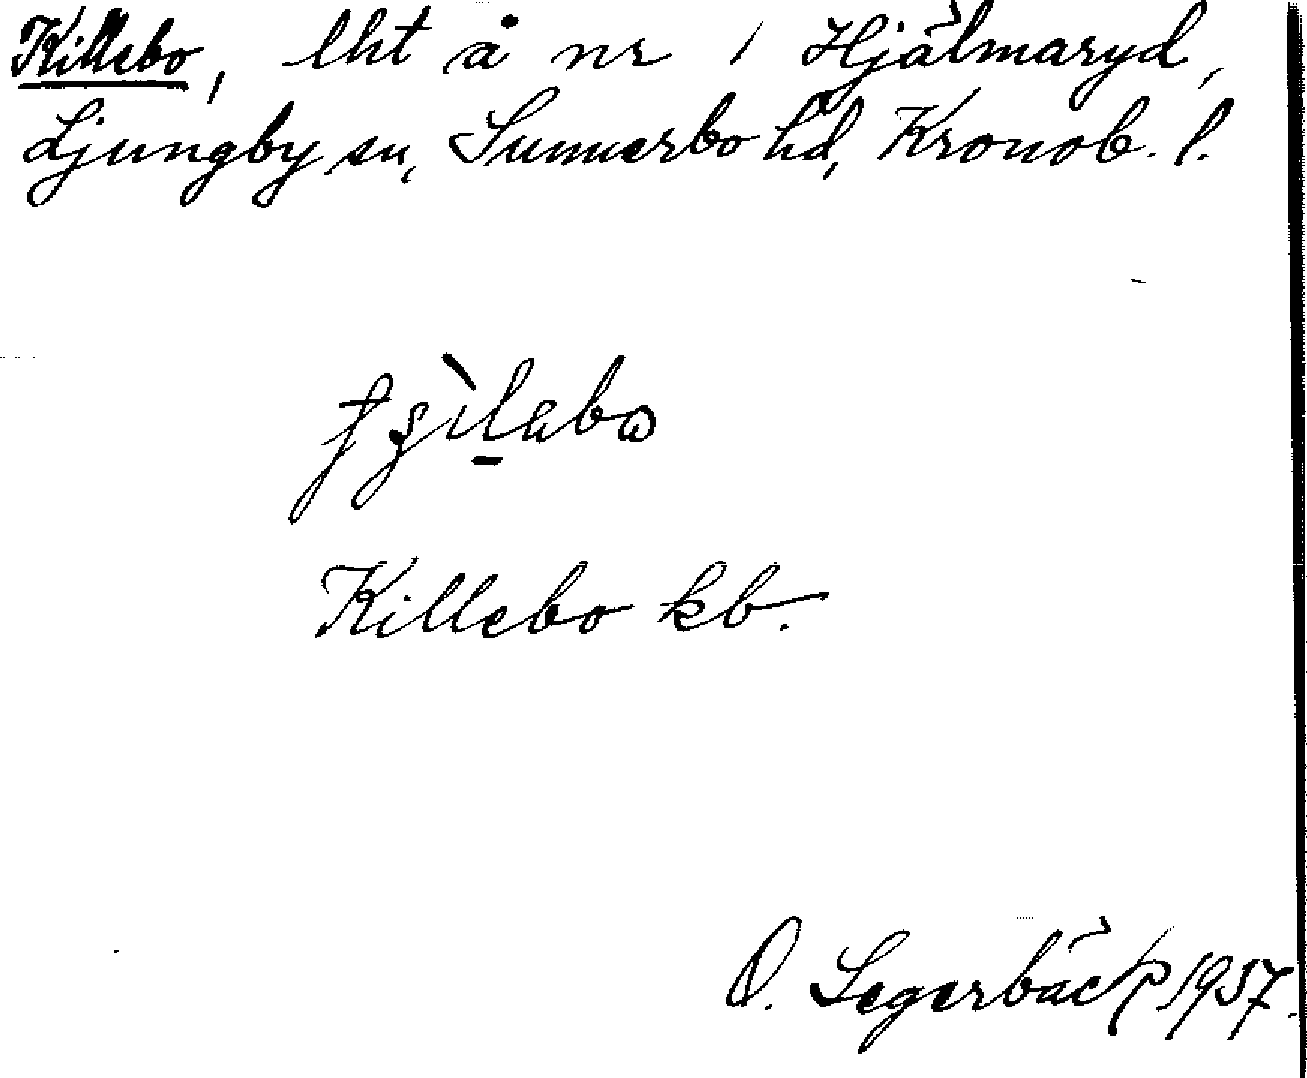 Killebo, lht å nr 1 Hjälmaryd,
Ljungby sn, Sunnerbo hd, Kronob. l.
Killebo kb.
O. Segerbäck 1957.